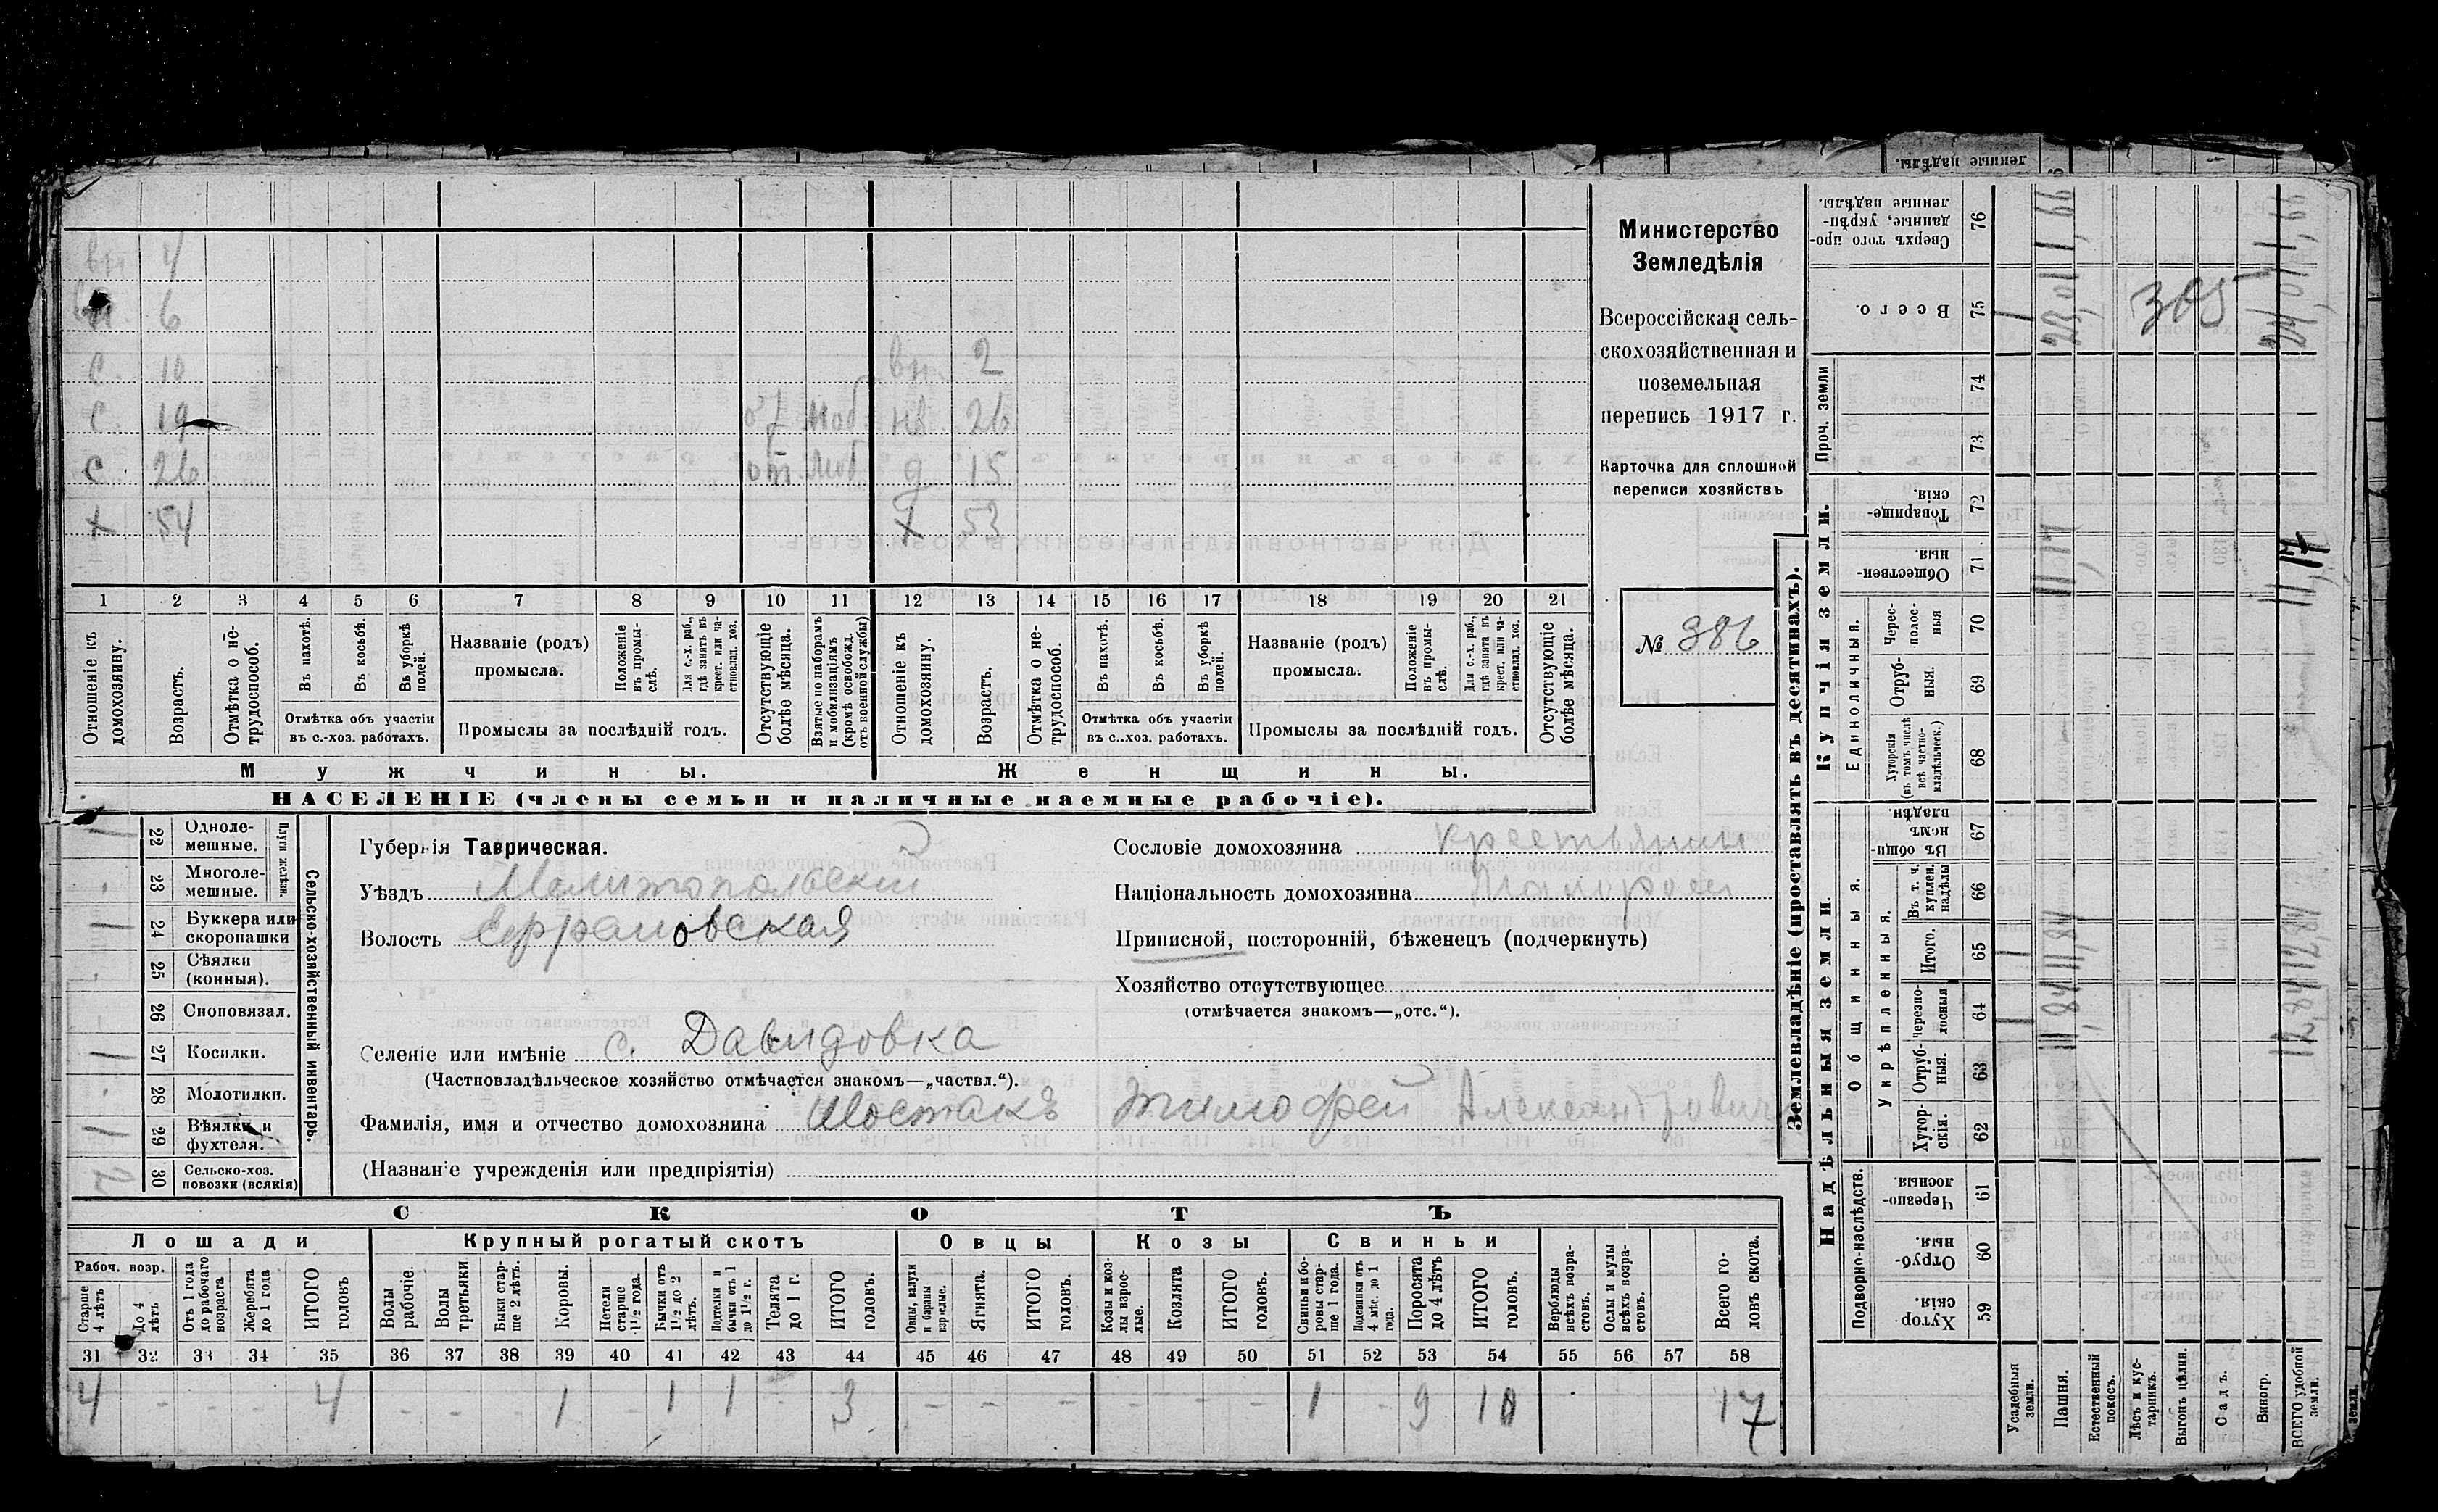 вн 4
6
с. 10 вн. 2
с. 19 от моб. нв. 26
с 26 от. моб д 15
х 54 х 53
1 2 3 4 5 6 7 8 9 10 11 12 13 14 15 16 17 18 19 20 21
Отношеніе къ домохозяину.
Возрастъ.
Отмѣтка о не-трудоспособ.
Въ пахотѣ.
Въ косьбѣ.
Въ уборкѣ полей.
Отмѣтка объ участіи въ с.-хоз. работахъ.
Названіе (родъ) промысла.
Положеніе въ промы-слѣ.
Для с.-х. раб., гдѣ занятъ въ крест. или ча-стновлад. хоз.
Промыслы за послѣдній годъ.
Отсутствующіе болѣе мѣсяца.
Взятые по наборамъ и мобилизаціямъ (кромѣ освобожд. отъ военной службы)
Отношеніе къ домохозяину.
Возрастъ.
Отмѣтка о не-трудоспособ.
Въ пахотѣ.
Въ косьбѣ.
Въ уборкѣ полей.
Отмѣтка объ участіи въ с..хоз. работахъ.
Названіе (родъ) промысла.
Положеніе въ промы-слѣ.
Для с.-х. раб., гдѣ занята въ крест. или ча-стновлад. хоз.
Промыслы за послѣдній годъ.
Отсутствующіе болѣе мѣсяца.
Мужчины. Женщины.
НАСЕЛЕНІЕ (члены семьи и наличные наемные рабочіе).
Министерство
Земледѣлія
Всероссійская сель-
скохозяйственная и
поземельная
перепись 1917 г.
Карточка для сплошной
переписи хозяйствъ
№ 386
Сельско-хозяйственный инвентарь.
Плуги желѣзн.
22 Однолемешные. 1
23 Многолемешные.
24 Буккера или скоропашки 1
25 Сѣялки (конныя).
26 Сноповязал.
27 Косилки. 1
28 Молотилки.
29 Вѣялки и фухтеля. 1
30 Сельско-хоз. повозки (всякія) 2
Губернія Таврическая.
Уѣздъ Мелитопольскій
Волость Ефрамовская
Селеніе или имѣніе с. Давидовка
(Частновладѣльческое хозяйство отмѣчается знакомъ—„частвл.“).
Фамилія, имя и отчество домохозяина Шостакъ Тимофей Александровичъ
(Названіе учрежденія или предпріятія)
Сословіе домохозяина крестьянин
Національность домохозяина Малоросс
Приписной, посторонній, бѣженецъ (подчеркнуть)
Хозяйство отсутствующее
(отмѣчается знакомъ—„отс.“).
СКОТЪ
Лошади Крупный рогатый скотъ Овцы Козы Свиньи
Рабоч. возр.
Старше 4 лѣтъ
До 4 лѣтъ
Отъ 1 года до рабочаго возраста
Жеребята до 1 года
ИТОГО головъ
Волы рабочіе.
Волы третьяки
Быки стар-ше 2 лѣтъ.
Коровы.
Нетели старше 1½ года.
Бычки отъ 1½ до 2 лѣтъ.
Подтелки и бычки отъ 1 до 1½ г.
Телята до 1 г.
ИТОГО головъ.
Овцы, валухи и бараны взрослые.
Ягнята.
ИТОГО головъ.
Козы и коз-лы взрос-лые.
Козлята
ИТОГО головъ.
Свиньи и бо-ровы стар-ше 1 года.
Подсвинки отъ 4 мѣс. до 1 года.
Поросята до 4 лѣтъ
ИТОГО головъ.
Верблюды всѣхъ возра-стовъ.
Ослы и мулы всѣхъ возра-стовъ.
Всего го-ловъ скота.
31 32 33 34 35 36 37 38 39 40 41 42 43 44 45 46 47 48 49 50 51 52 53 54 55 56 57 58
4 - - - 4 - - - 1 - 1 1 - 3 - - - - - - 1 - 9 10 17
Землевладѣніе (проставлять въ десятинахъ).
Надѣльныя земли. Купчія земли. Проч. земли
Подворно-наслѣдств. Общинныя. Укрѣпленныя. Единоличныя.
59 Хуторскія
60 Отрубныя.
61 Черезполосныя.
62 Хуторскія.
63 Отрубныя.
64 черезполосныя
65 Итого.
66 Въ т. ч. куплен. надѣлы
67 Въ общин. номъ владѣн.
68 Хуторскія (въ томъ числѣ всѣ частно-владѣльческ.)
69 Отрубныя.
70 Черес-полосныя
71 Обществен-ныя.
72 Товарище-скія.
73
74
75 Всего.
76 Сверхъ того про-данные, укрѣп-ленные надѣлы.
Усадебныя земли. 1 1 1
Пашня. 11,84 11,84 11,17 23,01
Естественный покосъ.
Лѣсъ и кус-тарникъ.
Выгонъ цѣлин.
Садъ.
Виногр.
ВСЕГО удобной земли. 12,84 12,84 11,17 24,01
305